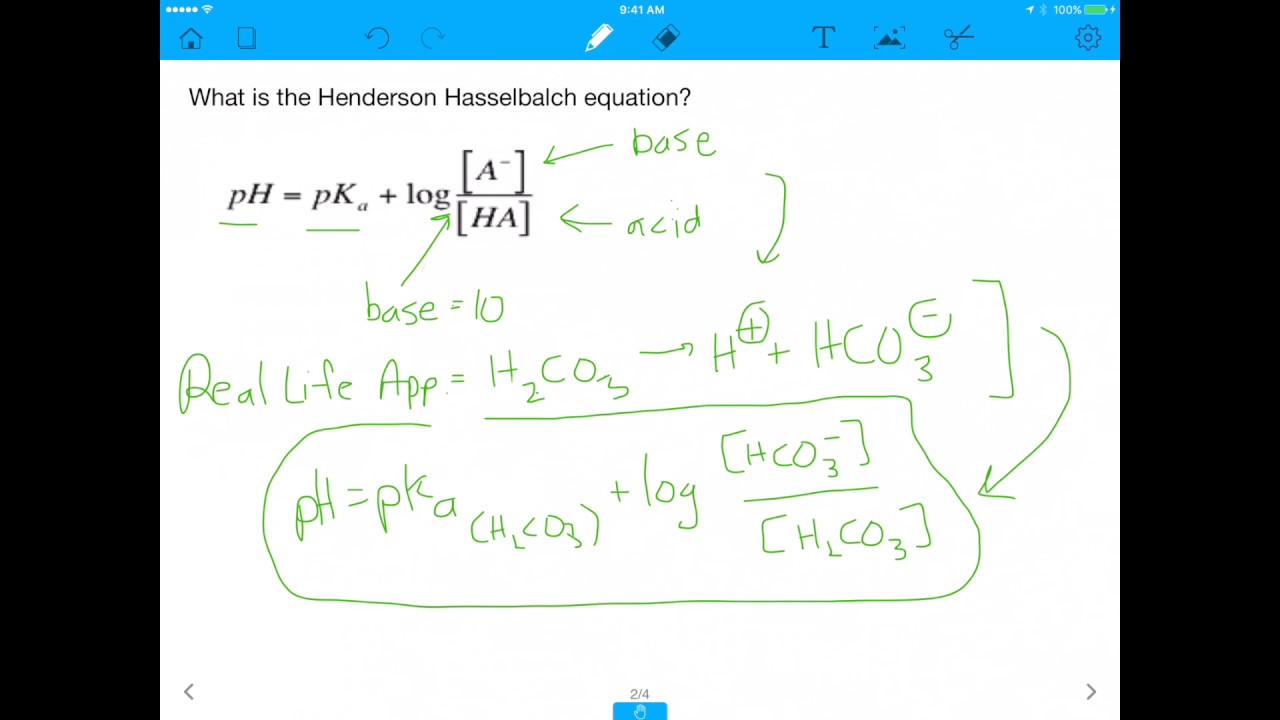 9:41 AM
100%
T
What is the Henderson Hasselbalch equation?
pH = pKₐ + log [A⁻] / [HA]
base
acid
base = 10
Real Life App. = H₂CO₃ → H⁺ + HCO₃⁻
pH = pKₐ (H₂CO₃) + log [HCO₃⁻] / [H₂CO₃]
2/4